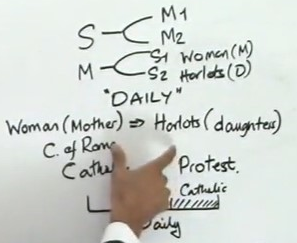 S M1
M2
M S1 Woman (M)
S2 Harlots (D)
"DAILY"
Woman (Mother) ⇒ Harlots (daughters)
C. of Rom
Cath Protest.
Catholic
Daily